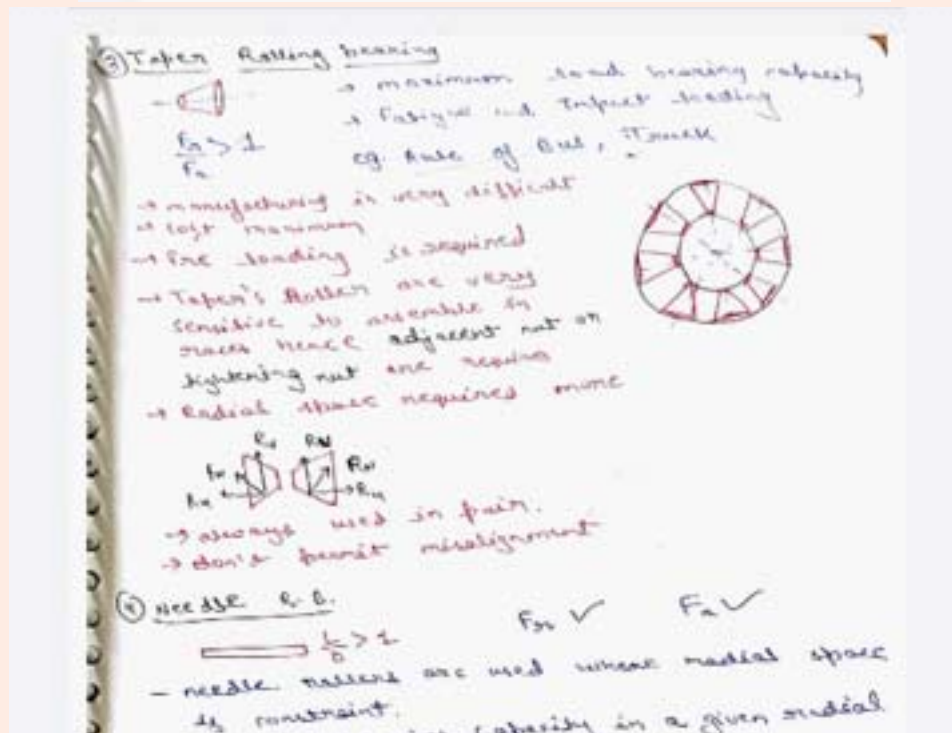 ③ Taper Rolling bearing
→ maximum load bearing capacity
→ Fatigue and Impact loading
Fr/Fa > 1
eg. Axle of Bus, Truck
→ manufacturing is very difficult
→ cost maximum
→ Pre loading is required
→ Taper's Roller are very
sensitive to assemble in
races hence adjacent nut or
tightening nut are require
→ Radial space requires more
→ always used in pair.
→ don't permit misalignment
④ Needle R.B.
Fr ✓ Fa ✓
L/D > 1
- needle rollers are used where radial space
is constraint.
capacity in a given radial